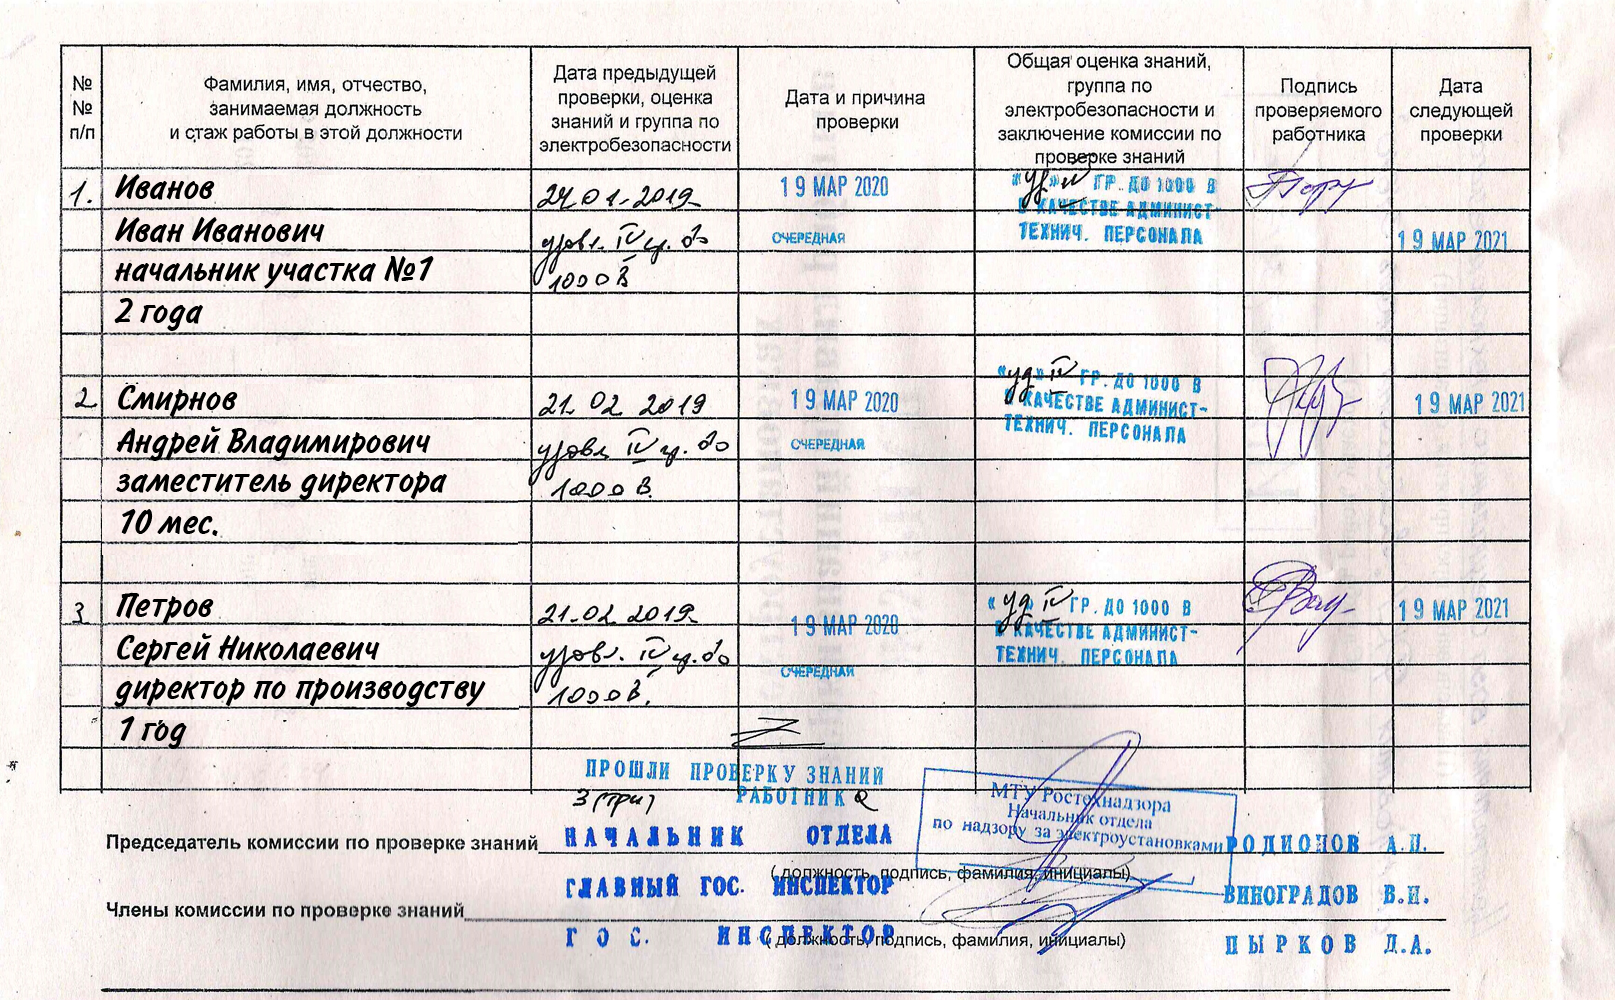 №
№
п/п
Фамилия, имя, отчество,
занимаемая должность
и стаж работы в этой должности
Дата предыдущей
проверки, оценка
знаний и группа по
электробезопасности
Дата и причина
проверки
Общая оценка знаний,
группа по
электробезопасности и
заключение комиссии по
проверке знаний
Подпись
проверяемого
работника
Дата
следующей
проверки
1.
Иванов
Иван Иванович
начальник участка №1
2 года
24 01.2019
удовл. IV гр. до
1000 В
19 МАР 2020
ОЧЕРЕДНАЯ
«уд» IV ГР. ДО 1000 В
В КАЧЕСТВЕ АДМИНИСТ-
ТЕХНИЧ. ПЕРСОНАЛА
19 МАР 2021
2
Смирнов
Андрей Владимирович
заместитель директора
10 мес.
21.02 2019
удовл IV гр. до
1000 В.
19 МАР 2020
ОЧЕРЕДНАЯ
«уд» IV ГР. ДО 1000 В
В КАЧЕСТВЕ АДМИНИСТ-
ТЕХНИЧ. ПЕРСОНАЛА
19 МАР 2021
3
Петров
Сергей Николаевич
директор по производству
1 год
21.02.2019
удовл. IV гр. до
1000 В.
19 МАР 2020
ОЧЕРЕДНАЯ
«уд» IV ГР. ДО 1000 В
В КАЧЕСТВЕ АДМИНИСТ-
ТЕХНИЧ. ПЕРСОНАЛА
19 МАР 2021
ПРОШЛИ ПРОВЕРКУ ЗНАНИЙ
3 (три) РАБОТНИКа
МТУ Ростехнадзора
Начальник отдела
по надзору за электроустановками
Председатель комиссии по проверке знаний НАЧАЛЬНИК ОТДЕЛА РОДИОНОВ А.П.
(должность, подпись, фамилия, инициалы)
ГЛАВНЫЙ ГОС. ИНСПЕКТОР ВИНОГРАДОВ В.И.
Члены комиссии по проверке знаний
ГОС. ИНСПЕКТОР ПЫРКОВ Д.А.
(должность, подпись, фамилия, инициалы)